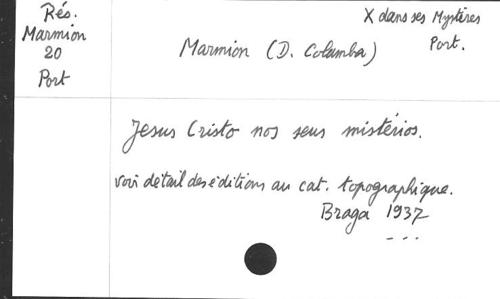 Rés.
Marmion
20
Port
X dans ses Mystères
Port.
Marmion (D. Columba)
Jesus Cristo nos seus mistérios.
voir détail des éditions au cat. topographique.
Braga 1937
...